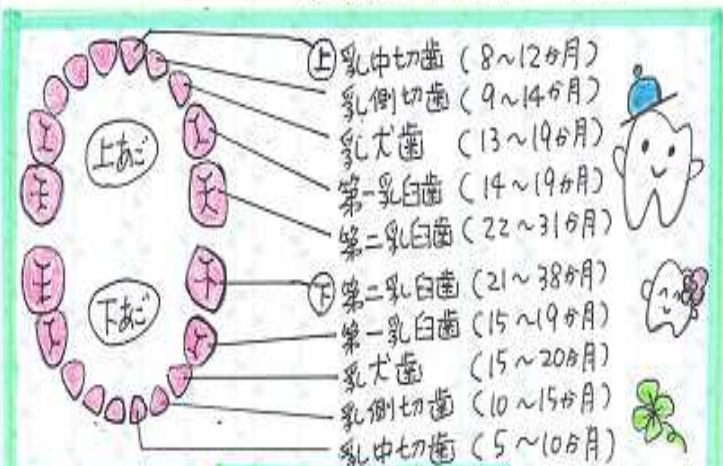 上あご
㊤ 乳中切歯 (8~12か月)
乳側切歯 (9~14か月)
乳犬歯 (13~19か月)
第一乳臼歯 (14~19か月)
第二乳臼歯 (22~31か月)
下あご
㊦ 第二乳臼歯 (21~38か月)
第一乳臼歯 (15~19か月)
乳犬歯 (15~20か月)
乳側切歯 (10~15か月)
乳中切歯 (5~10か月)